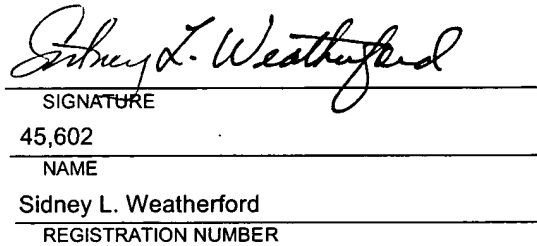 Sidney L. Weatherford
SIGNATURE
45,602
NAME
Sidney L. Weatherford
REGISTRATION NUMBER